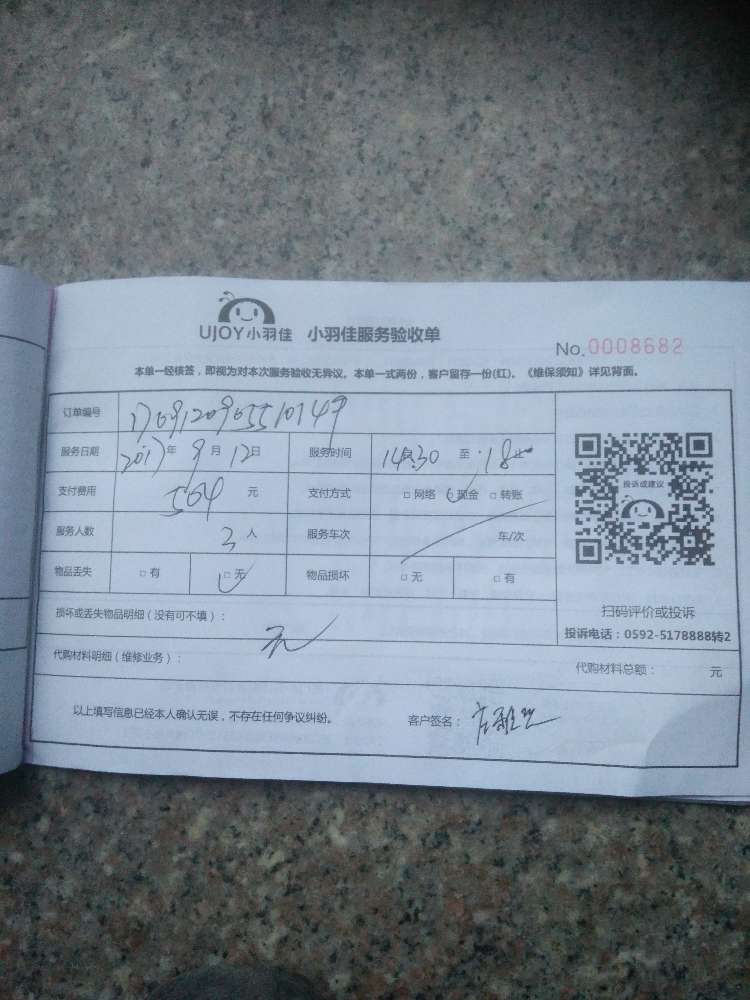 UJOY小羽佳 小羽佳服务验收单
No.0008682
本单一经核签，即视为对本次服务验收无异议。本单一式两份，客户留存一份(红)。《维保须知》详见背面。
订单编号
服务日期 2017年 9月 12日 服务时间 14:30 至 18
支付费用 504 元 支付方式 □ 网络 □ 现金 □ 转账
服务人数 3 人 服务车次 车/次
物品丢失 □ 有 □ 无 物品损坏 □ 无 □ 有
投诉或建议
扫码评价或投诉
投诉电话：0592-5178888转2
损坏或丢失物品明细（没有可不填）： 无
代购材料明细（维修业务）： 代购材料总额： 元
以上填写信息已经本人确认无误，不存在任何争议纠纷。 客户签名：